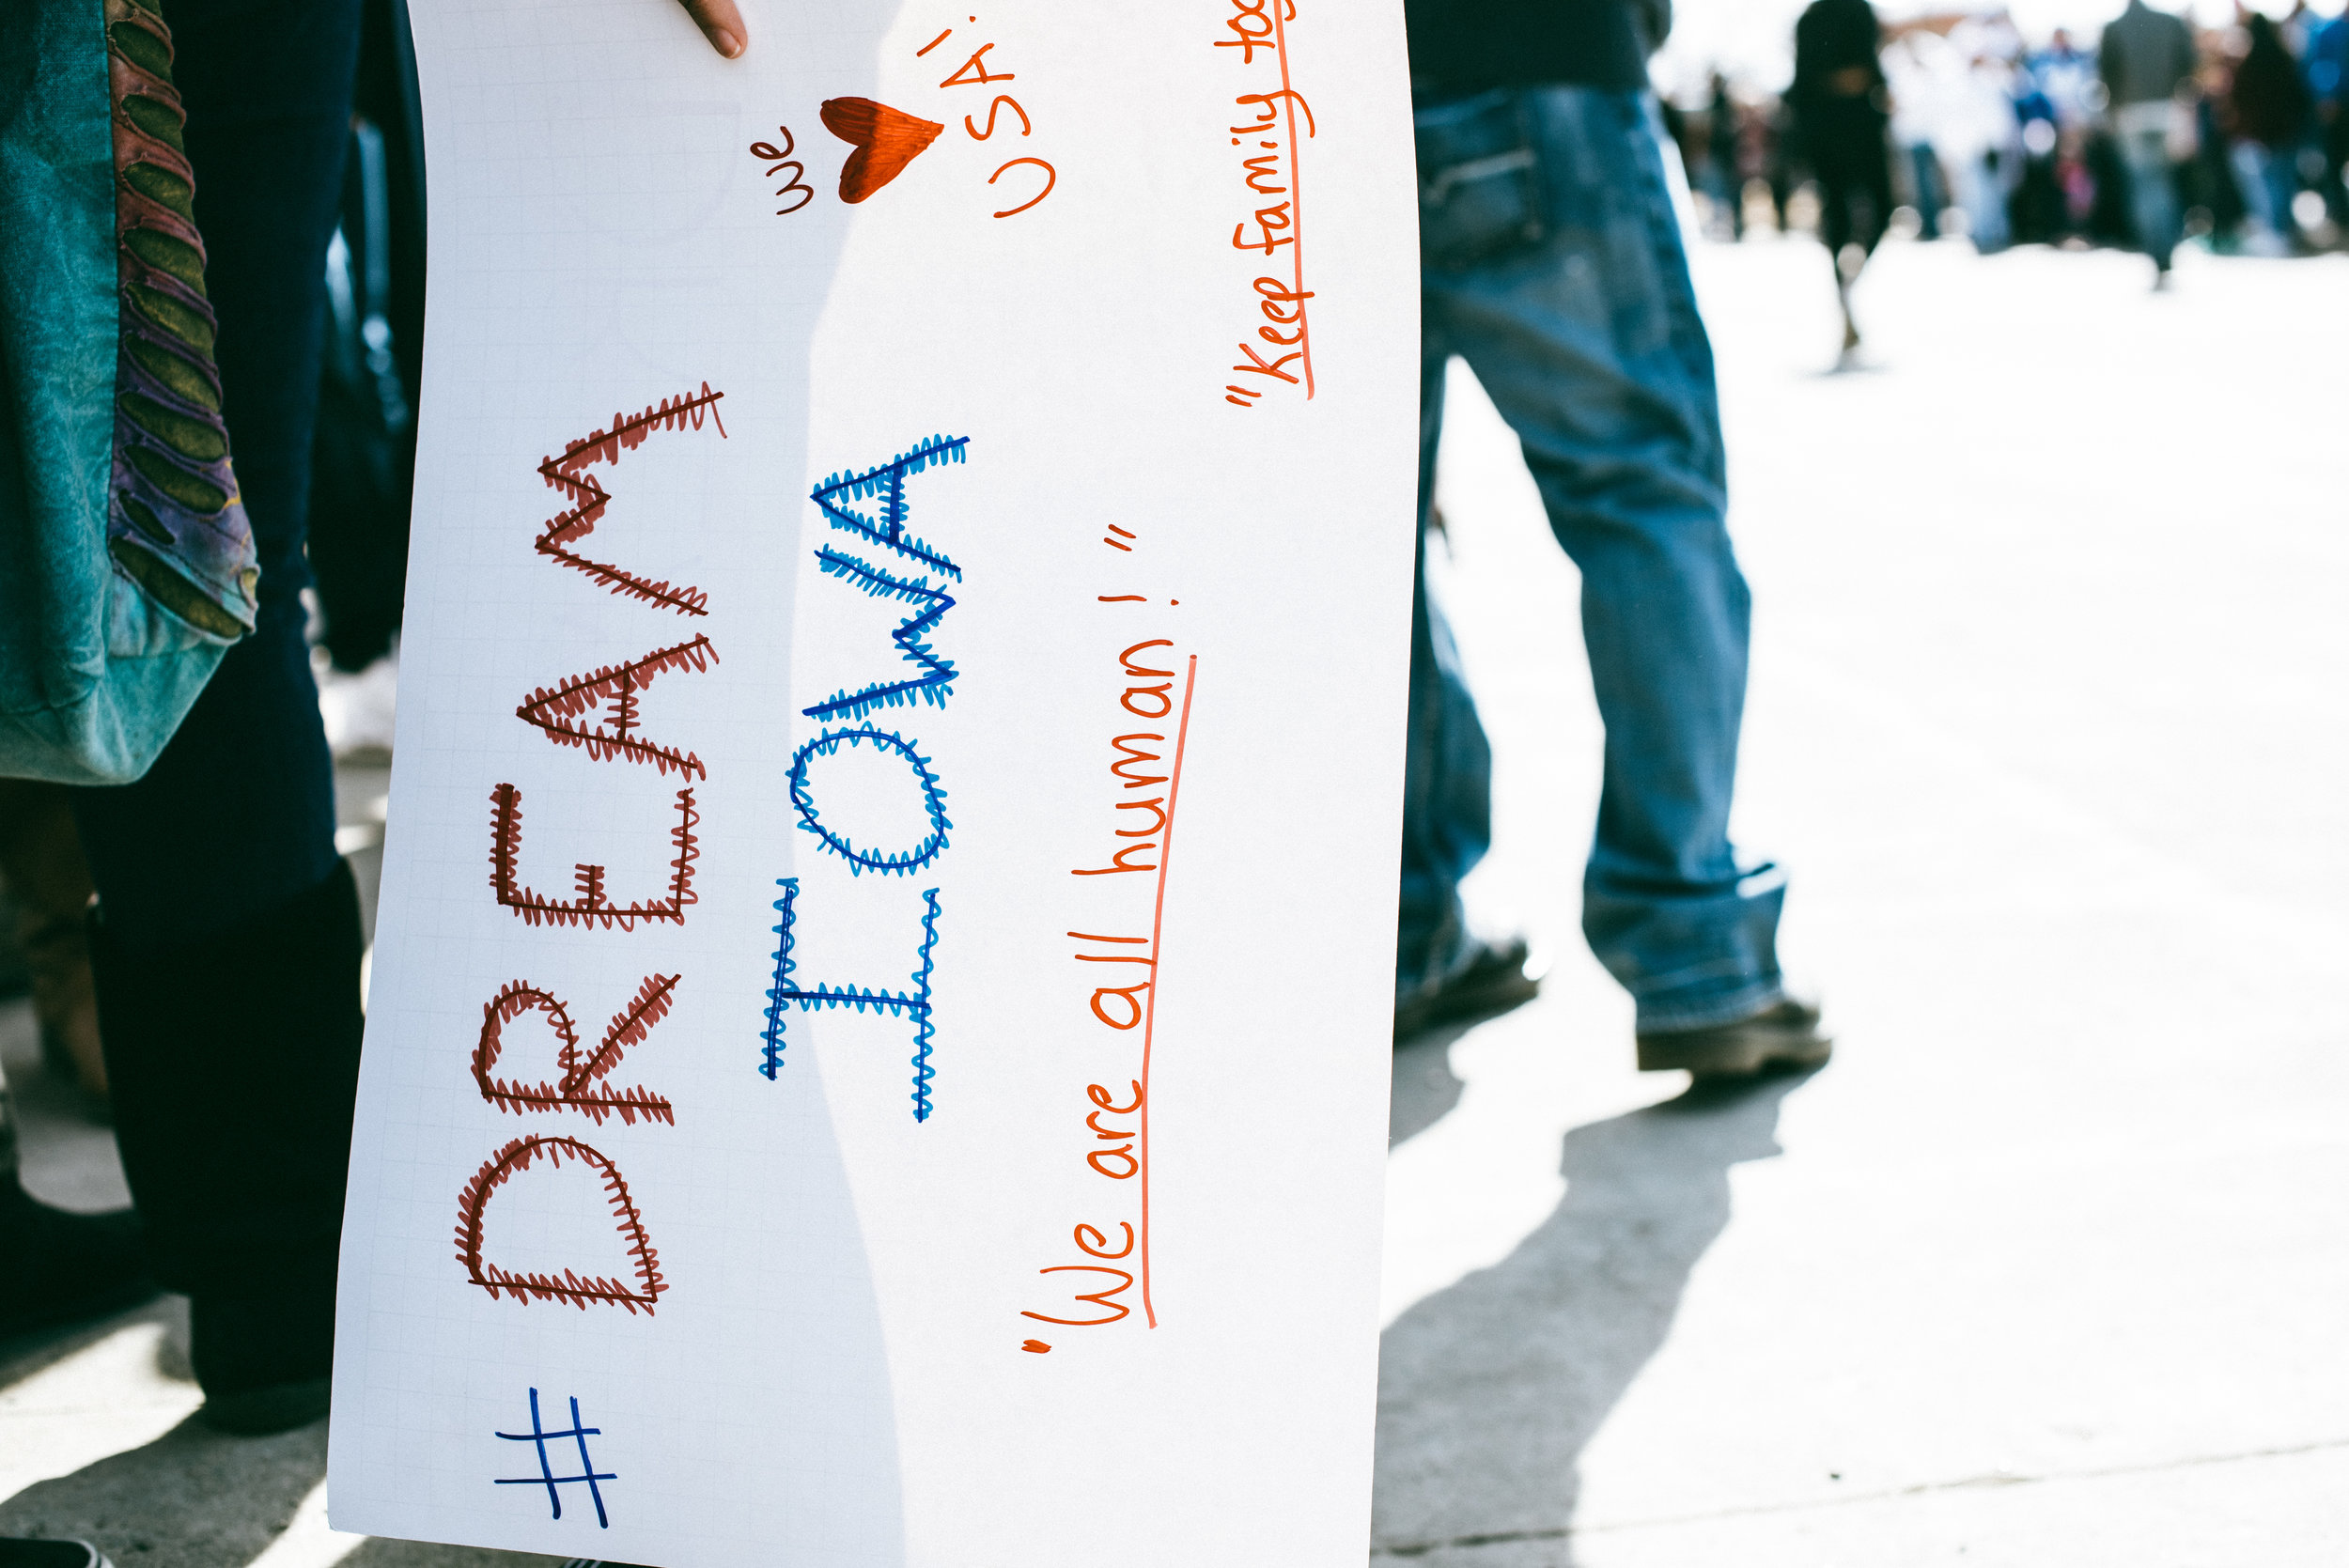 # DREAM
IOWA
we ♥
USA!
"We are all human!"
"Keep family